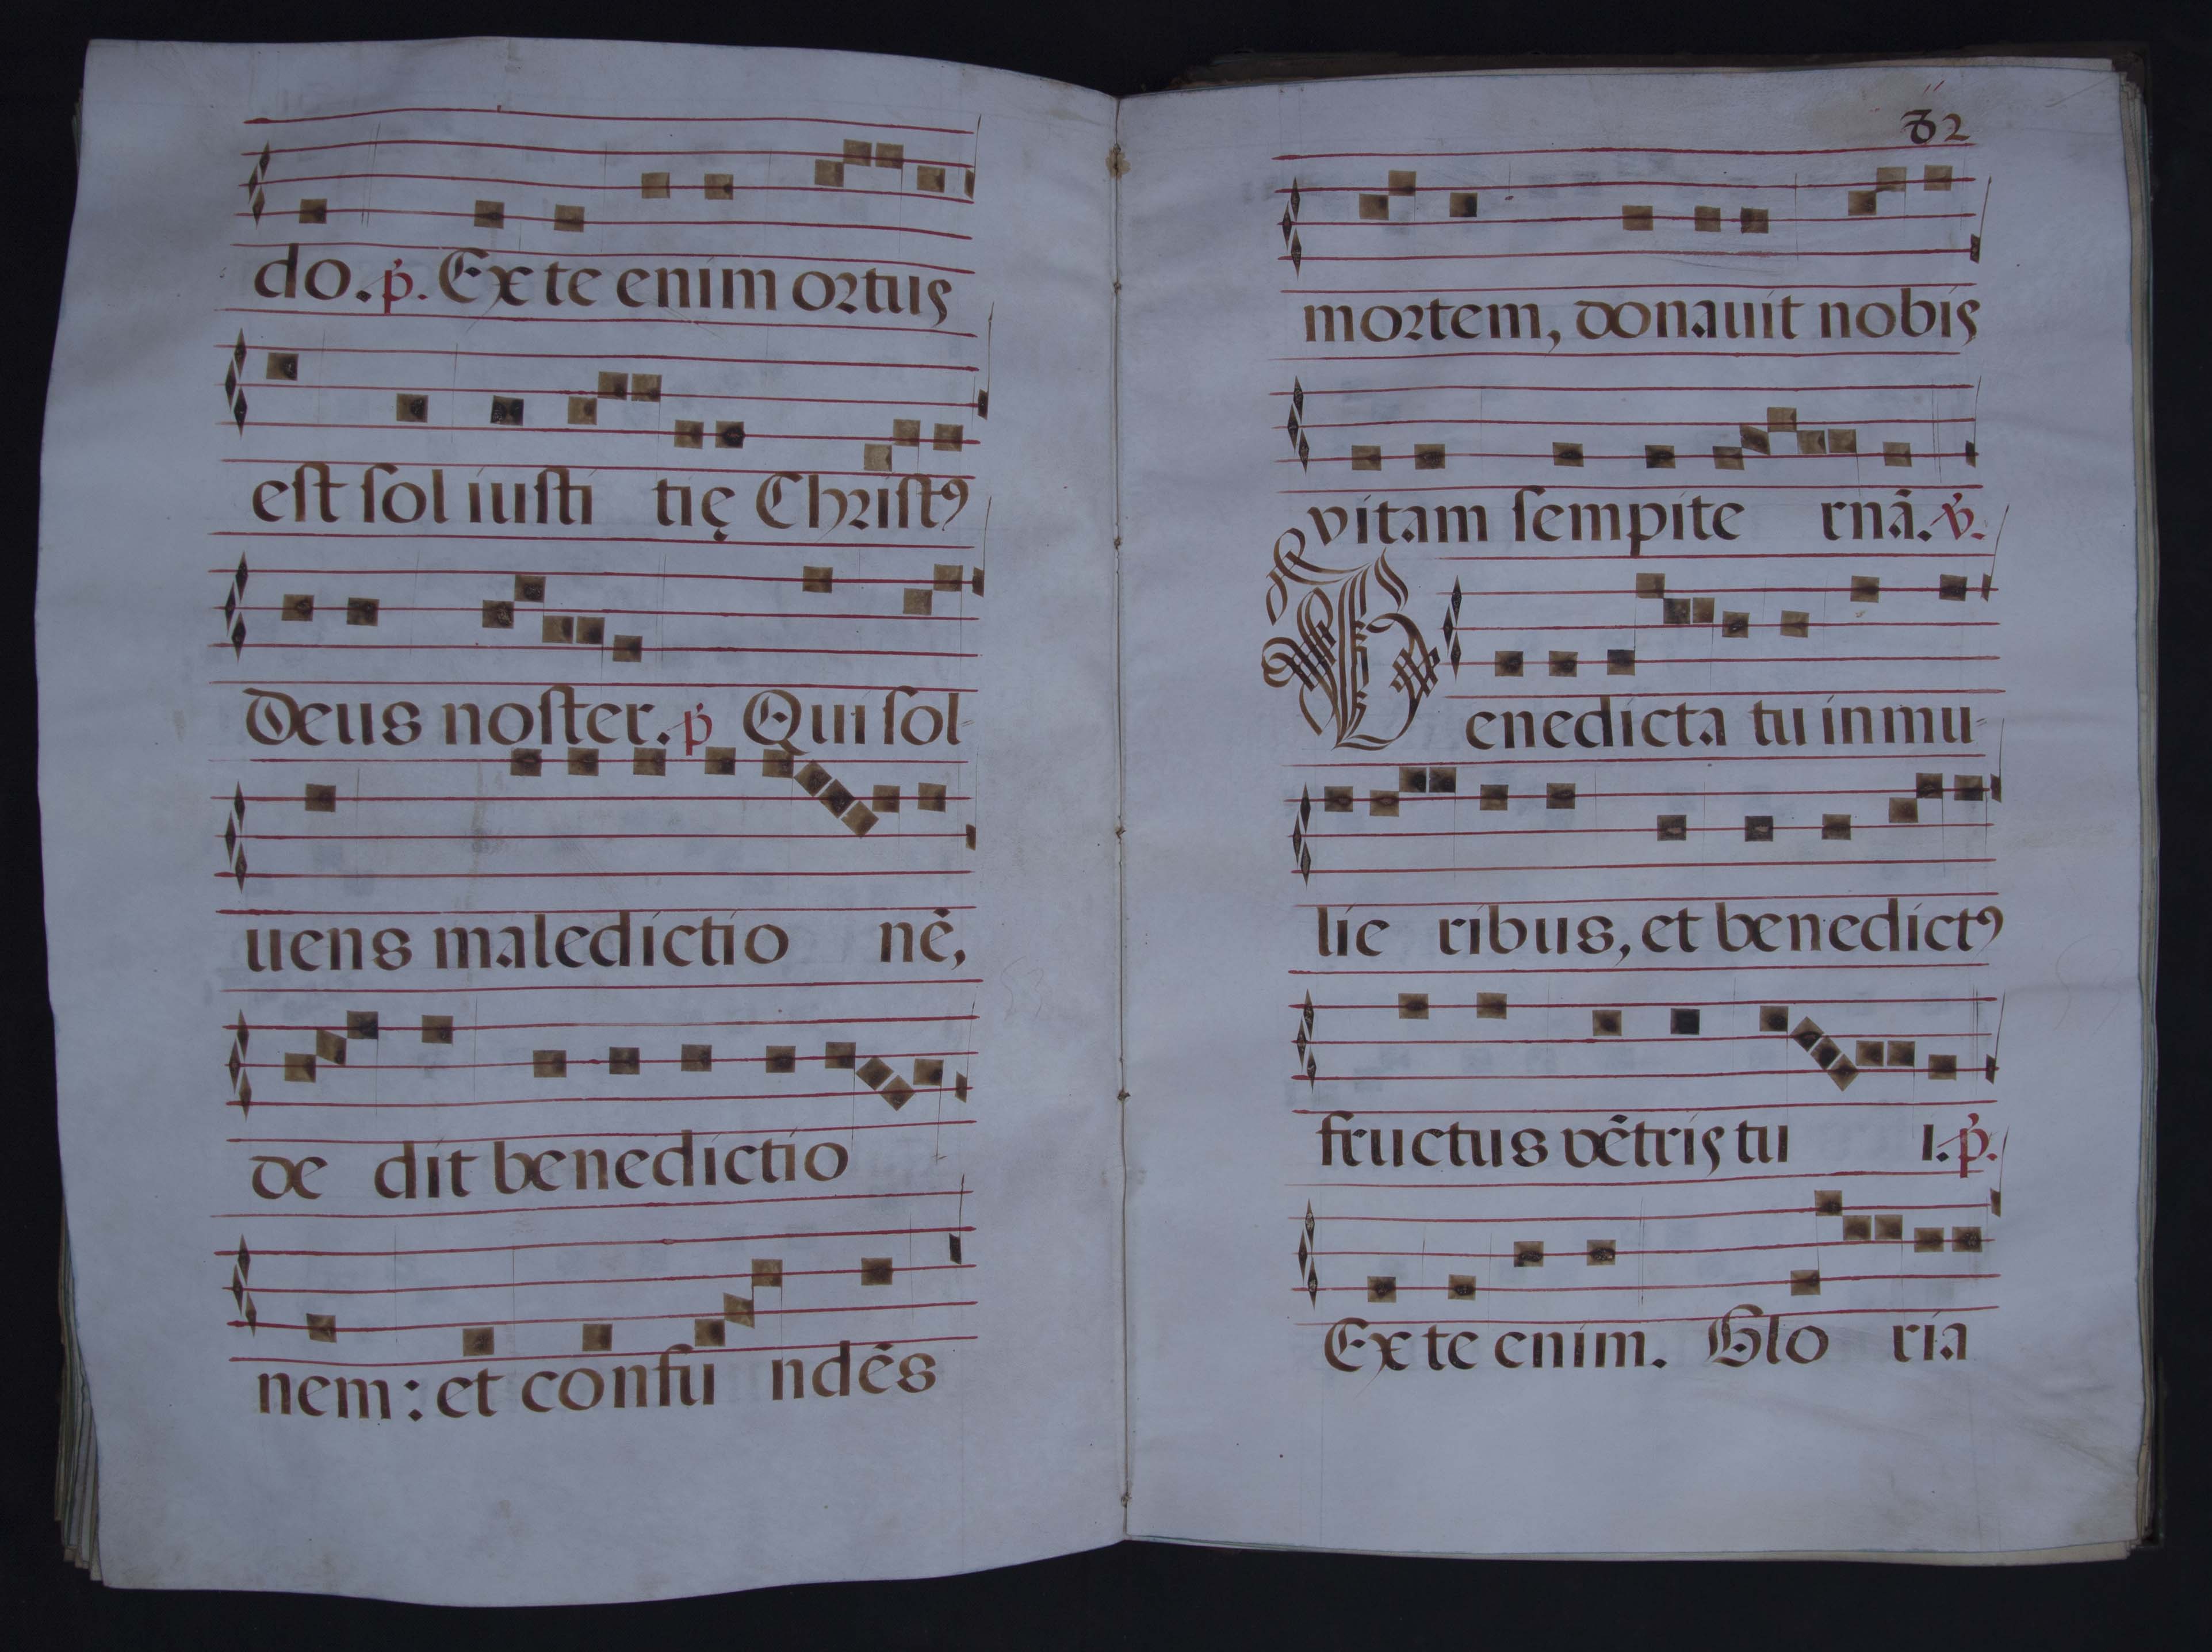 do. p. Ex te enim ortus
est sol iusti tię Christꝰ
Deus noster. p Qui sol-
uens maledictio nē,
de dit benedictio
nem: et confu ndēs
82
mortem, donauit nobis
vitam sempite rnā. v.
Benedicta tu in mu-
lie ribus, et benedictꝰ
fructus vētris tu i. p.
Ex te enim. Glo ria